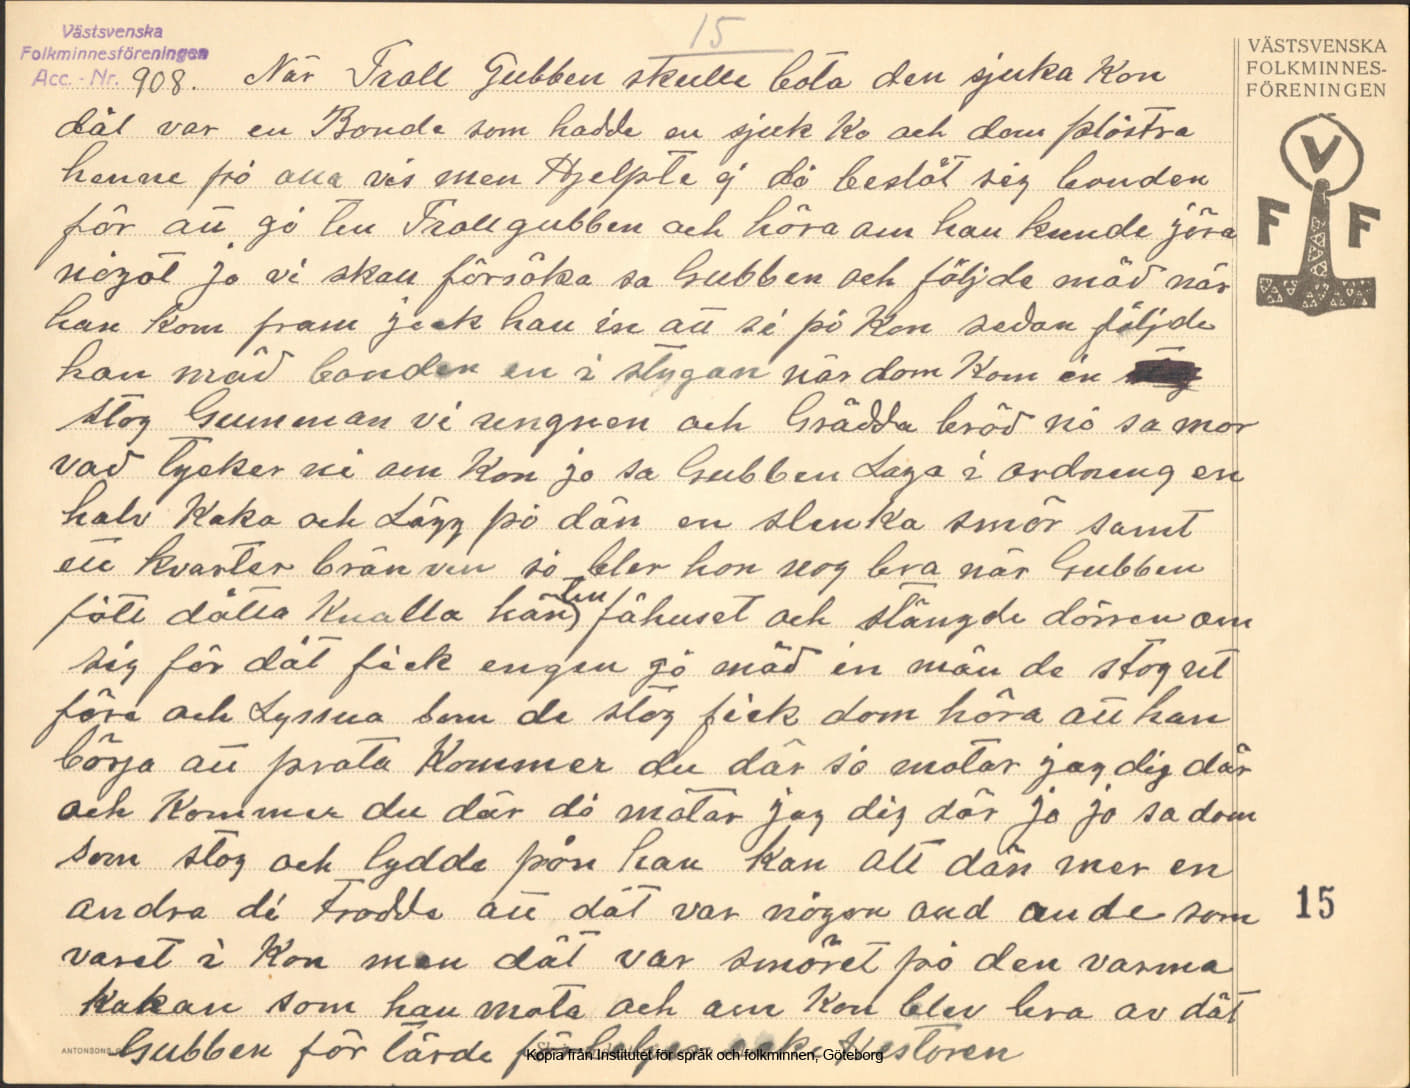 15
Västsvenska
Folkminnesföreningen
Acc. - Nr. 908.
VÄSTSVENSKA
FOLKMINNES-
FÖRENINGEN
V
F F
När Trall Gubben skulle bota den sjuka Kon
dät var en Bonde som hadde en sjuk Ko och dom plöstra
henne på alla vis men Hjelpte ej då beslöt sig bonden
för att gå till Trallgubben och höra om han kunde jöra
något jo vi skall försöka sa Gubben och följde mäd när
han kom fram jeck han in att se på Kon sedan följde
han mäd bonden en i stugan när dom Kom in
stog Gumman vi ungnen och Grädda bröd nå sa mor
vad tycker ni om Kon jo sa Gubben Laga i ordning en
halv Kaka och Lägg på dän en slinka smör samt
ett kvarter bränvin så blir hon nog bra när Gubben
fått dätta Knalla hän till fähuset och stängde dörren om
sig för dät fick engen gå mäd in män de stog ut
före och Lyssna som de stog fick dom höra att han
börja att prata Kommer du där så motar jag dig där
och Kommer du där då motar jag dig där jo jo sa dom
som stog och lydde pån han kan allt dän mer en
andra de trodde att dät var någon ond ande som
varet i Kon men dät var smöret på den varma
kakan som han mota och om Kon blev bra av dät
Gubben för tärde
Hestoren
15
ANTONSONS
Kopia från Institutet för språk och folkminnen, Göteborg